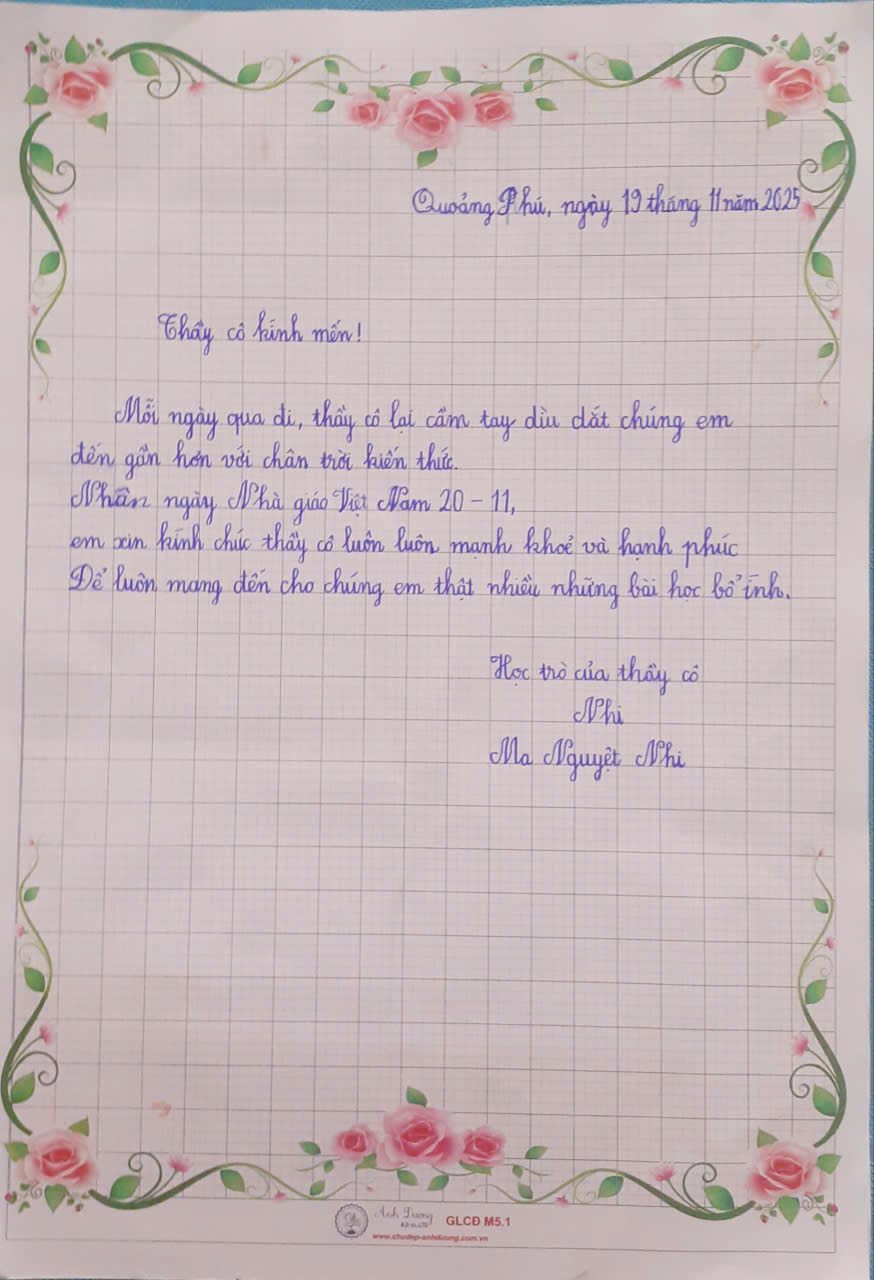 Quảng Phú, ngày 19 tháng 11 năm 2025
Thầy cô kính mến!
Mỗi ngày qua đi, thầy cô lại cầm tay dìu dắt chúng em
đến gần hơn với chân trời kiến thức.
Nhân ngày Nhà giáo Việt Nam 20 - 11,
em xin kính chúc thầy cô luôn luôn mạnh khoẻ và hạnh phúc
Để luôn mang đến cho chúng em thật nhiều những bài học bổ ính.
Học trò của thầy cô
Nhi
Ma Nguyệt Nhi
Ánh Dương
GLCĐ M5.1
www.chudep-anhduong.com.vn